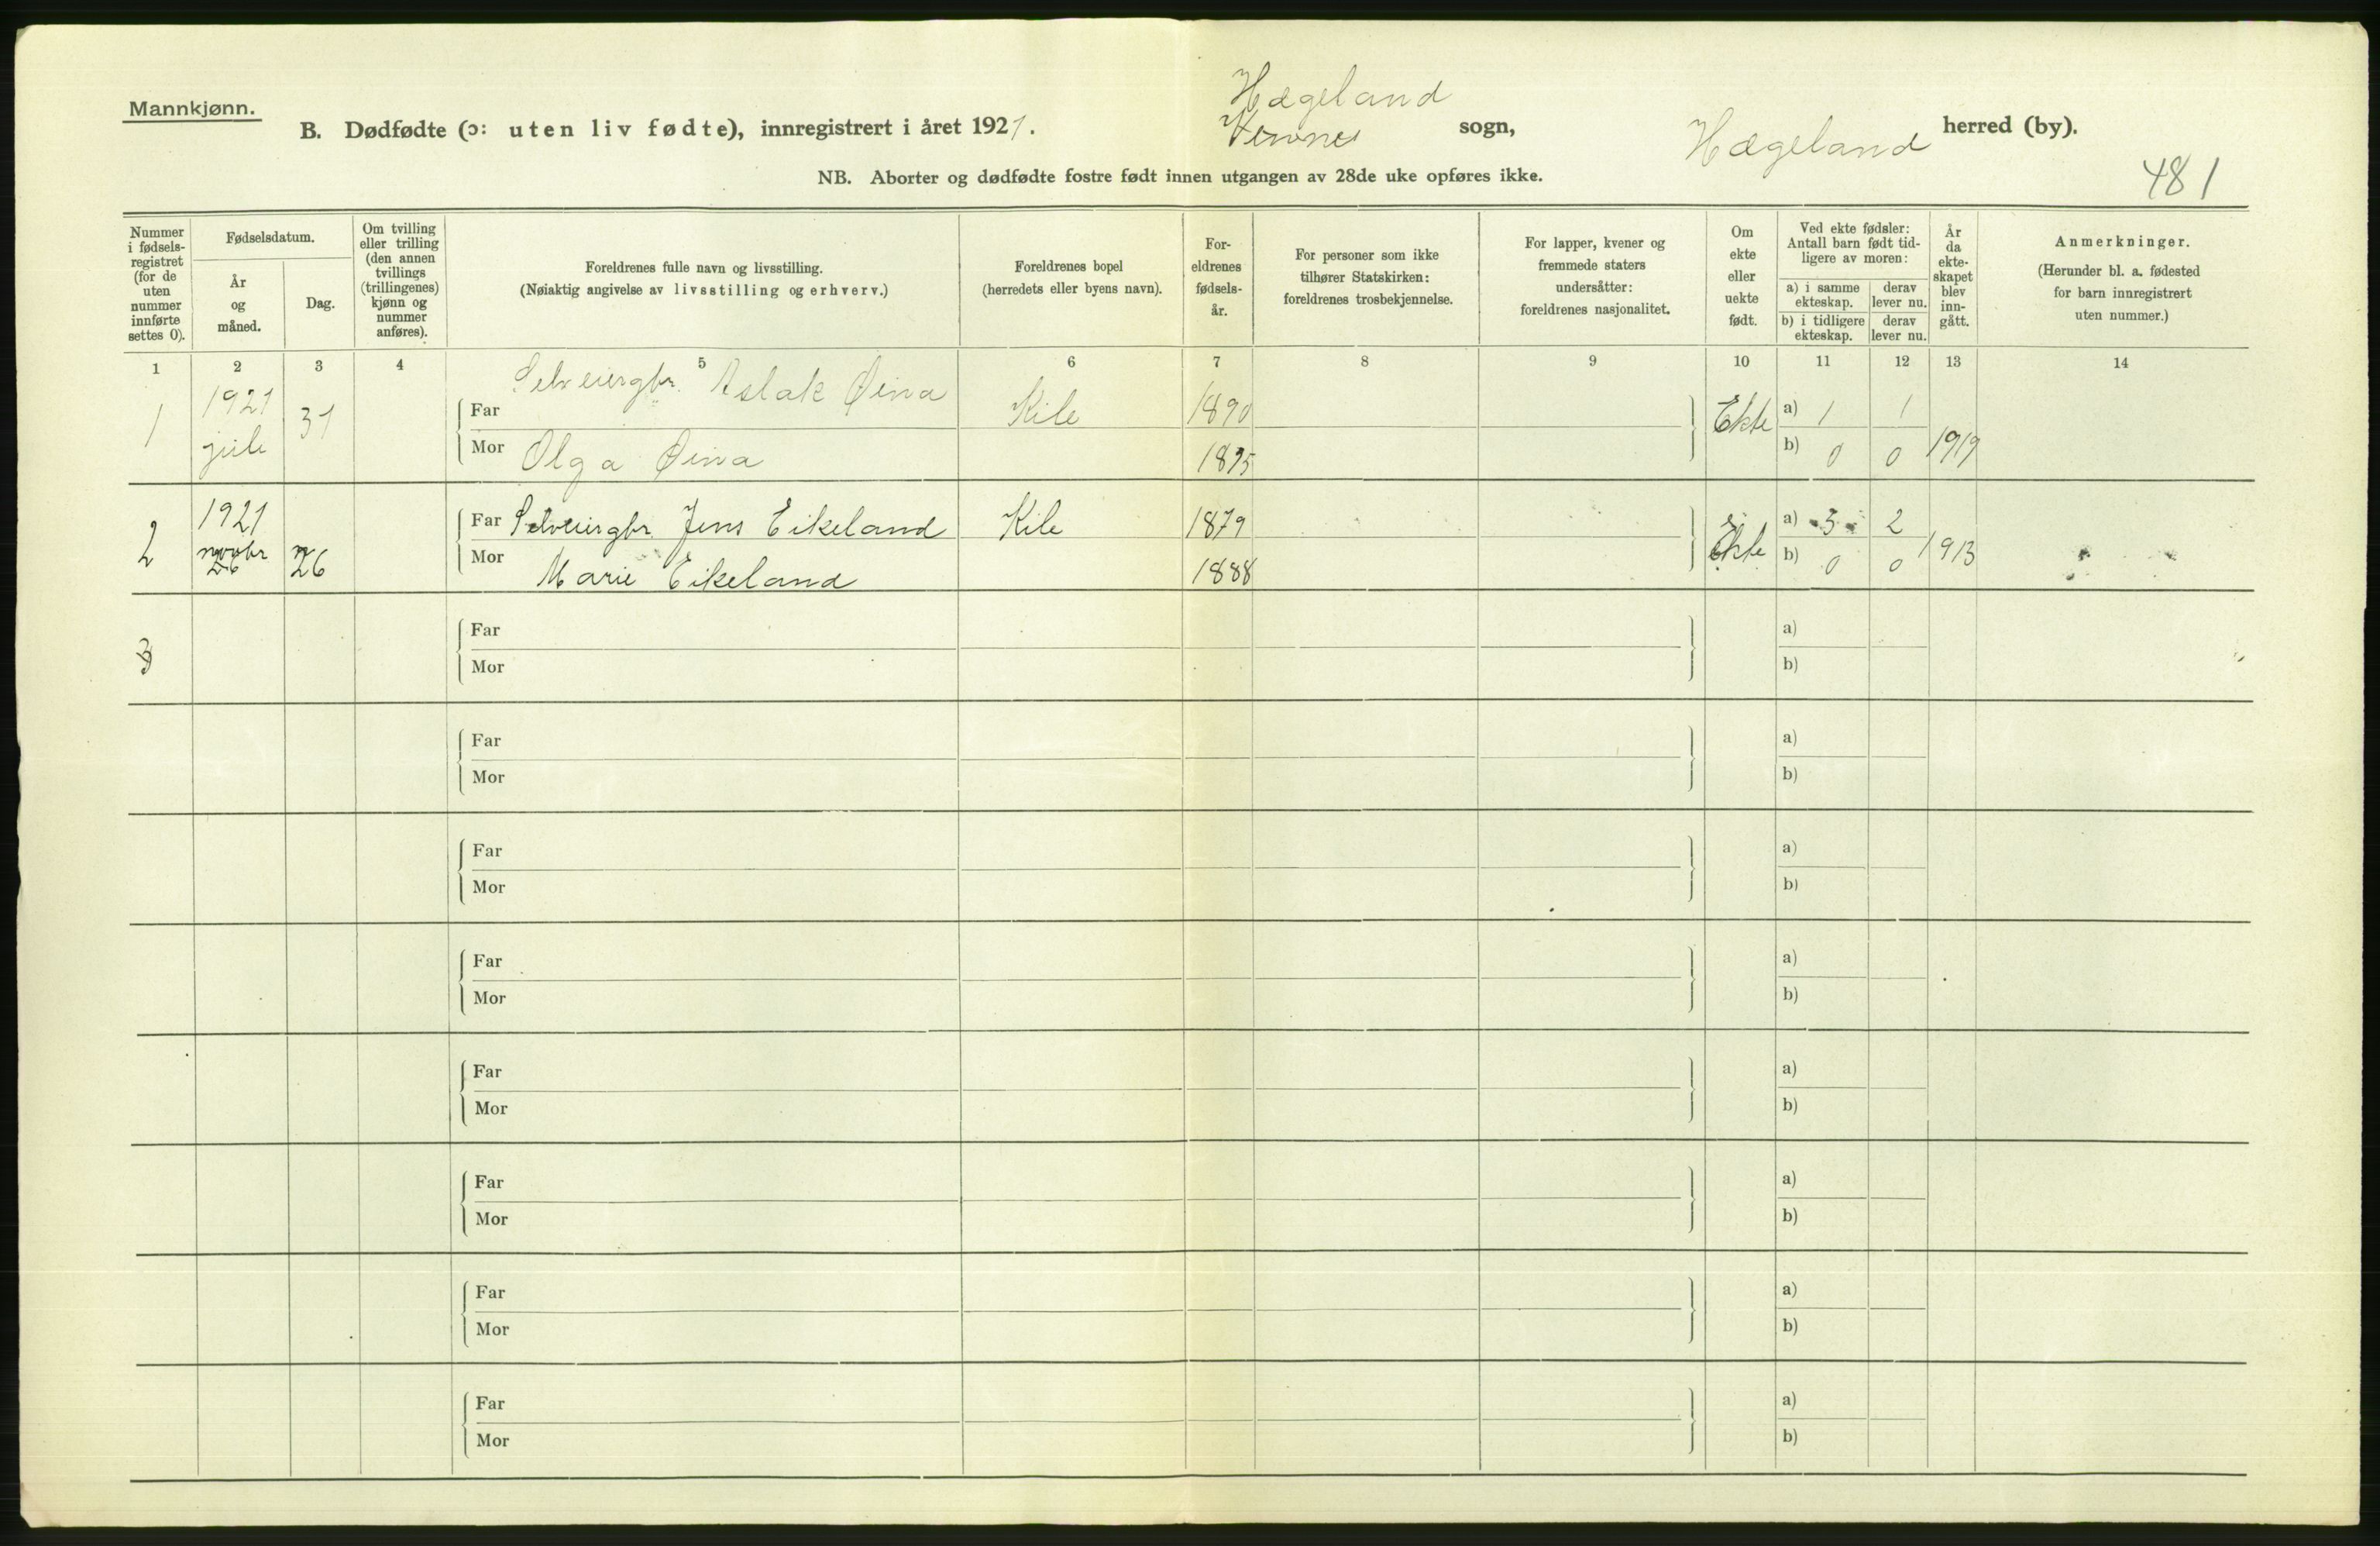 Mannkjønn.
B. Dødfødte (ɔ: uten liv fødte), innregistrert i året 1921. Hægeland sogn, Hægeland herred (by).
NB. Aborter og dødfødte fostre født innen utgangen av 28de uke opføres ikke.
481
Nummer i fødsels-registret (for de uten nummer innførte settes 0).
Fødselsdatum.
År og måned.
Dag.
Om tvilling eller trilling (den annen tvillings (trillingenes) kjønn og nummer anføres).
Foreldrenes fulle navn og livsstilling.
(Nøiaktig angivelse av livsstilling og erhverv.)
Foreldrenes bopel
(herredets eller byens navn).
For-eldrenes fødsels-år.
For personer som ikke tilhører Statskirken: foreldrenes trosbekjennelse.
For lapper, kvener og fremmede staters undersåtter: foreldrenes nasjonalitet.
Om ekte eller uekte født.
Ved ekte fødsler: Antall barn født tid-ligere av moren:
a) i samme ekteskap. derav lever nu.
b) i tidligere ekteskap. derav lever nu.
År da ekte-skapet blev inn-gått.
Anmerkninger.
(Herunder bl. a. fødested for barn innregistrert uten nummer.)
1 2 3 4 5 6 7 8 9 10 11 12 13 14
1 1921 31 Far Selveiergbr. Aslak Øina Kile 1890 Ekte a) 1 1
juli Mor Olga Øina 1895 b) 0 0 1919
2 1921 Far Selveiergbr. Jens Eikeland Kile 1879 Ekte a) 3 2
novbr 26 26 Mor Marie Eikeland 1888 b) 0 0 1913
3 Far a)
Mor b)
Far a)
Mor b)
Far a)
Mor b)
Far a)
Mor b)
Far a)
Mor b)
Far a)
Mor b)
Far a)
Mor b)
Far a)
Mor b)